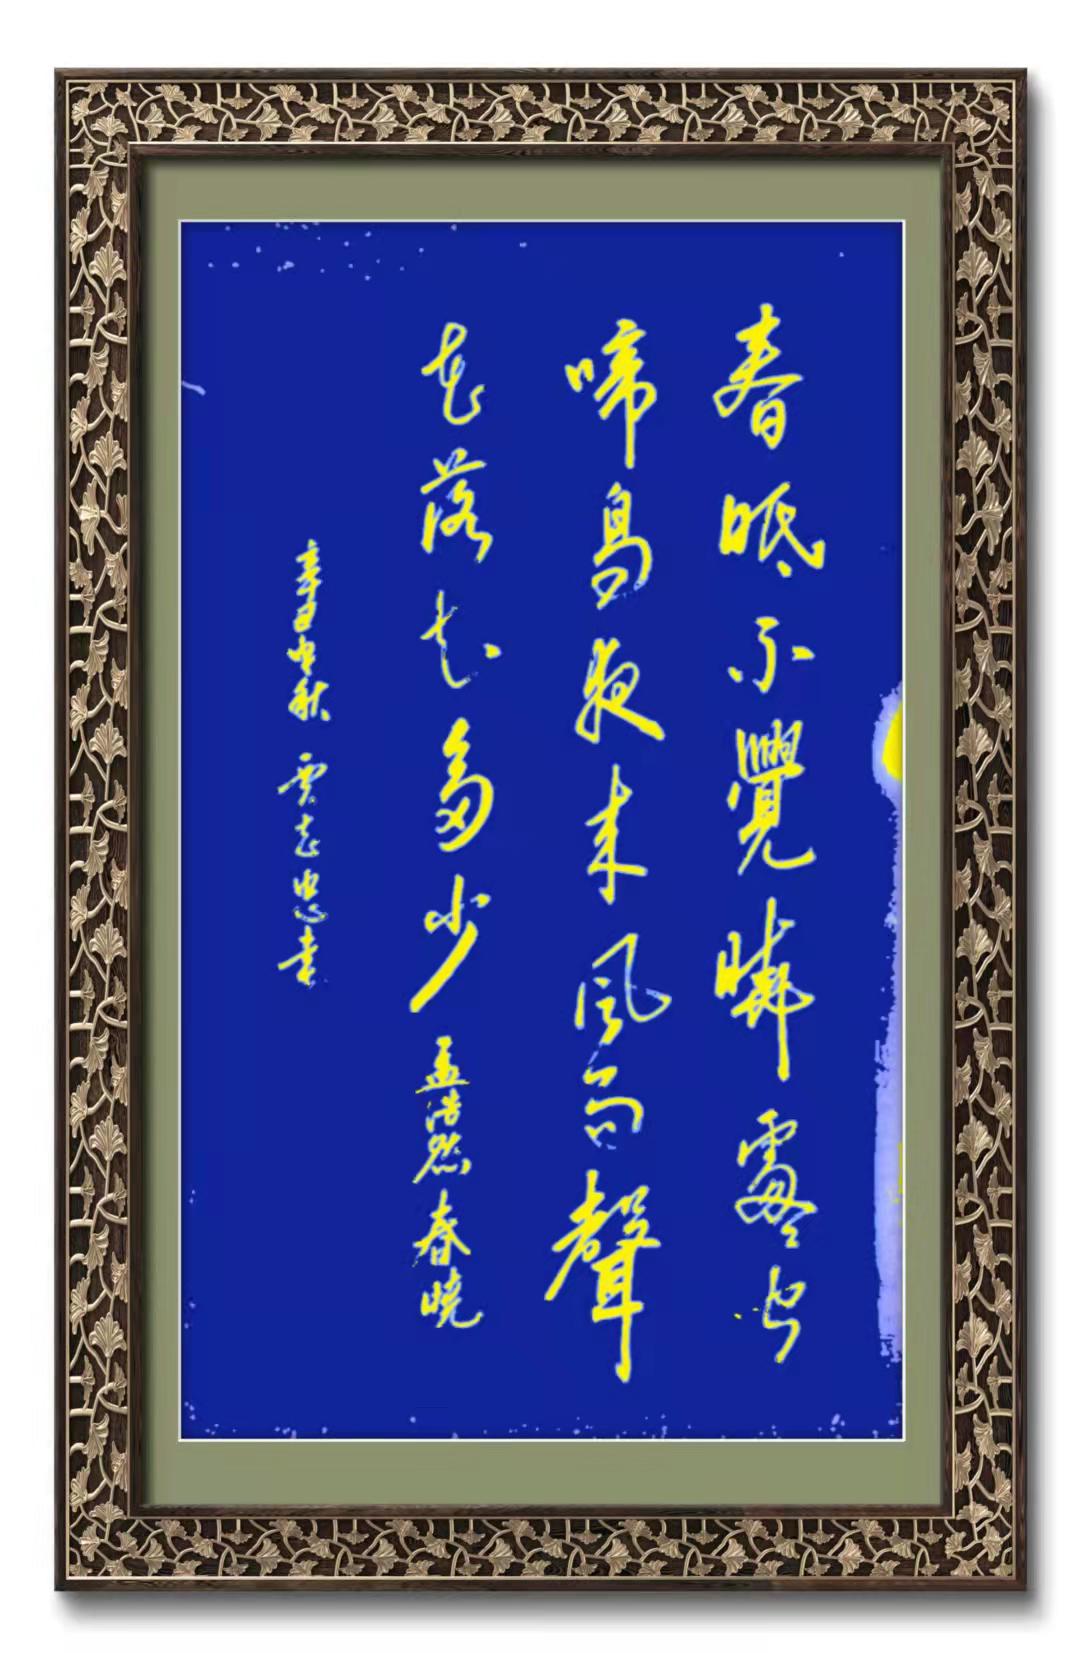 春眠不覺曉處々聞
啼鳥夜来風雨聲
花落知多少 孟浩然春晓
辛丑中秋 志忠书